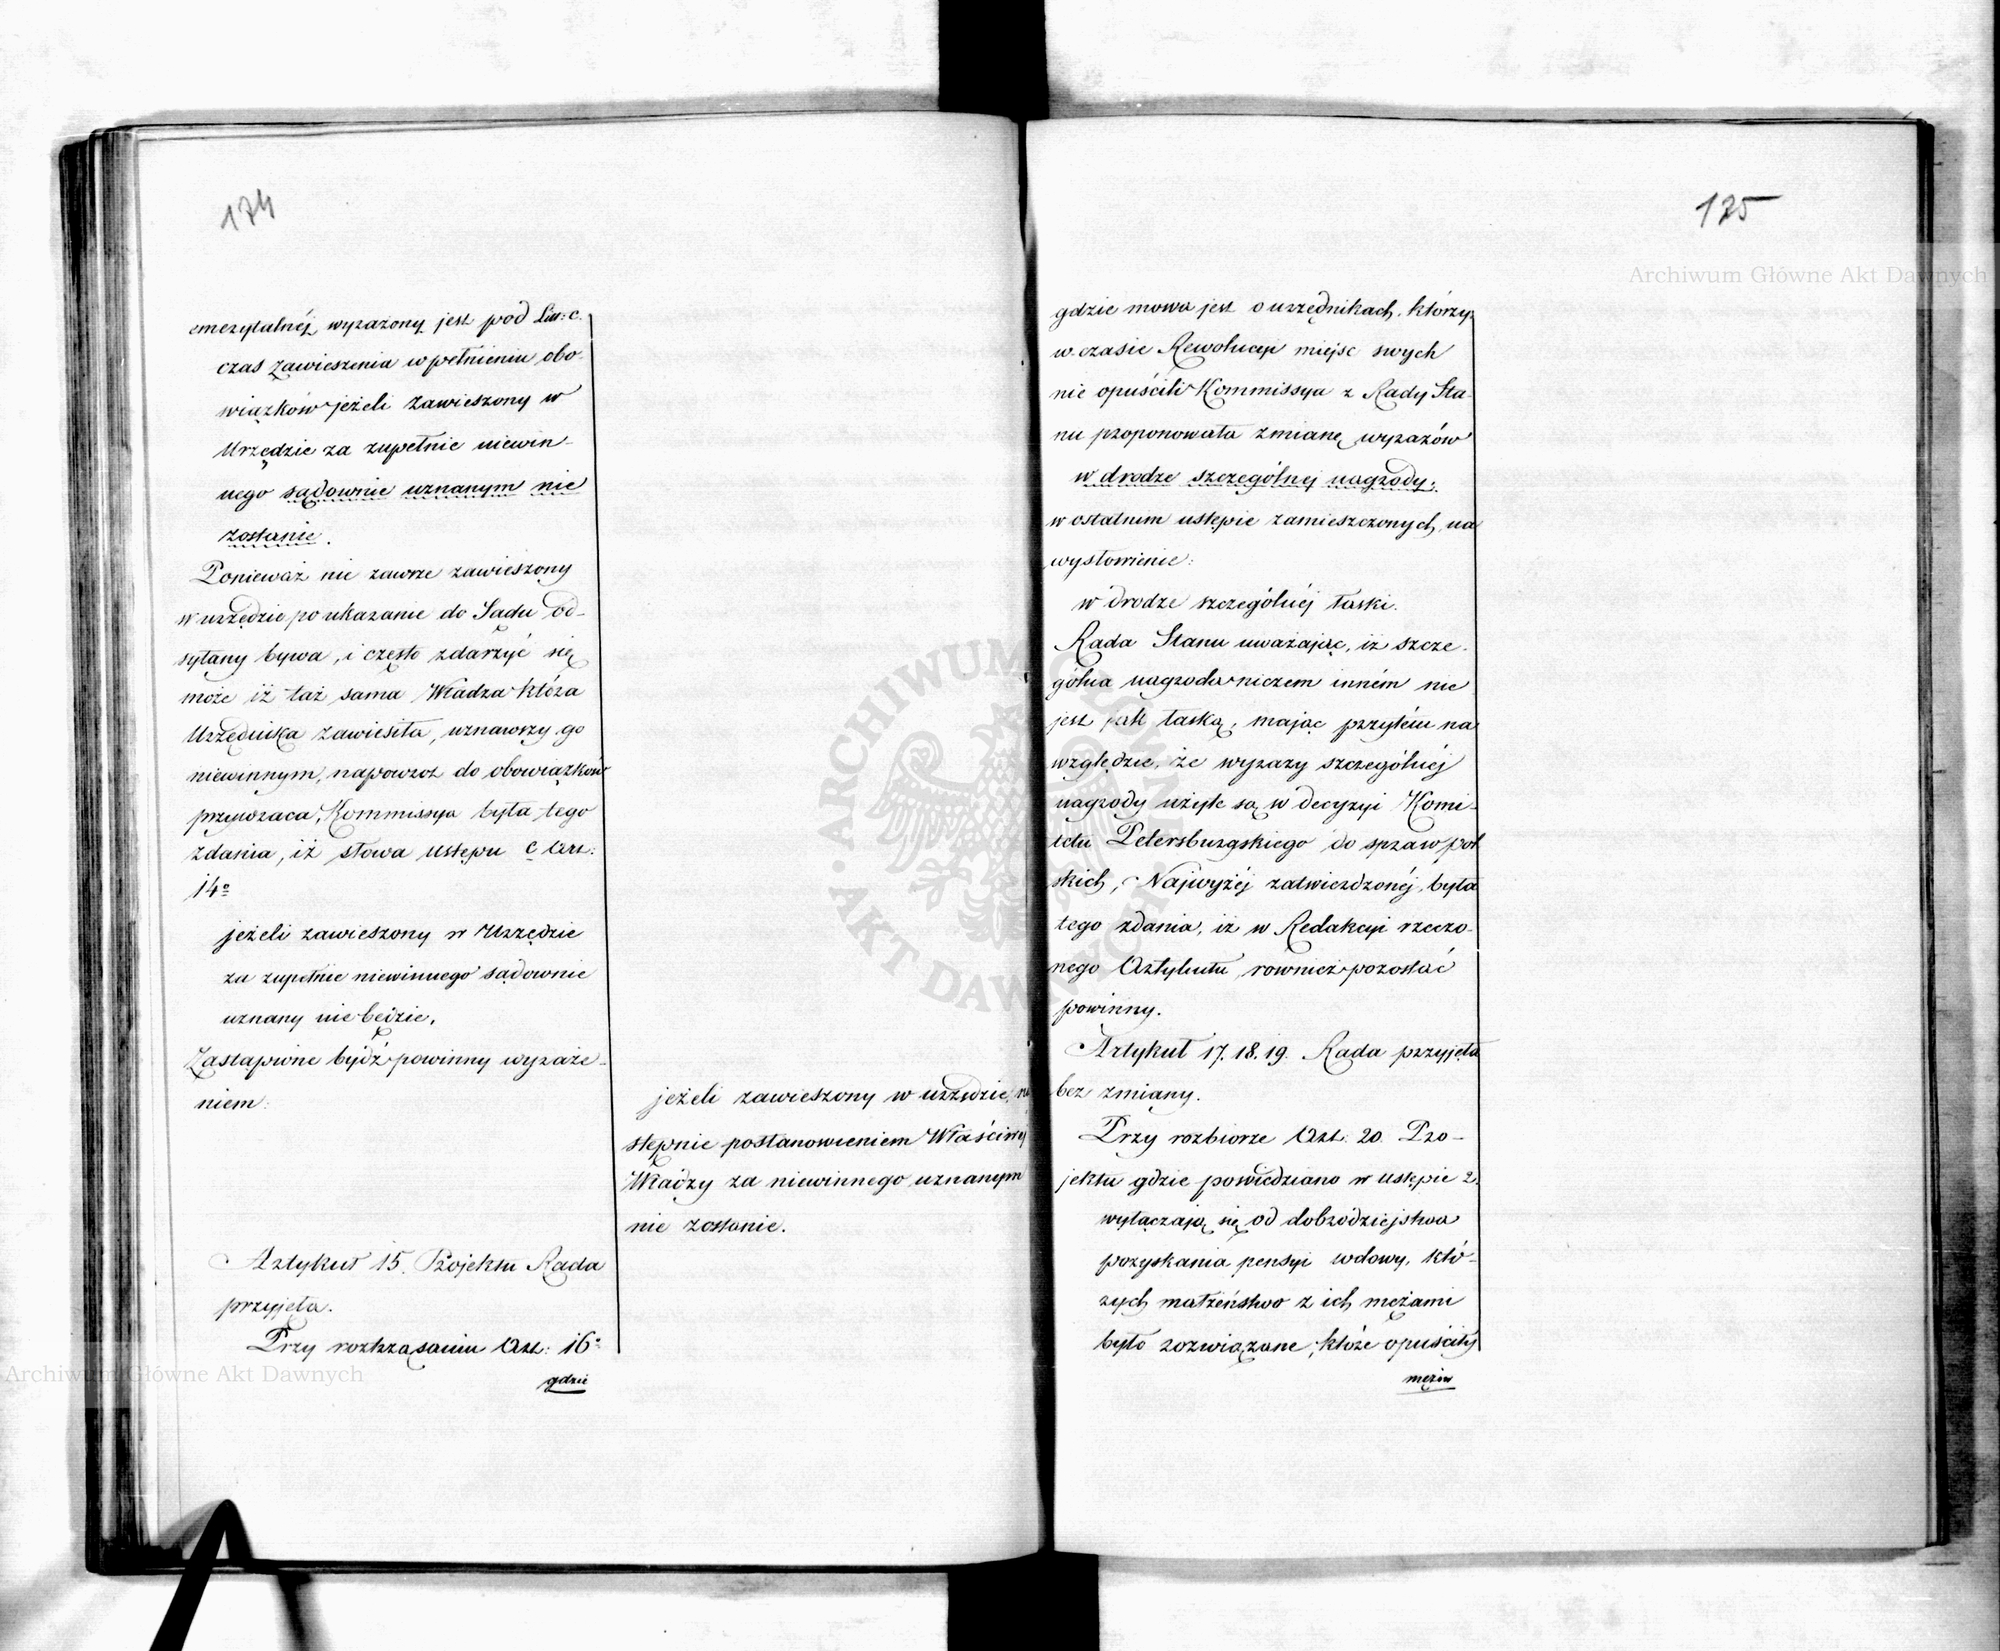 174
emerytalnéj wyrażony jest pod Litt: c.
czas zawieszenia w pełnieniu obo-
wiązków jeżeli zawieszony w
Urzędzie za zupełnie niewin-
nego sądownie uznanym nie
zostanie.
Ponieważ nie zawsze zawieszony
w urzędzie po ukaranie do Sądu od-
syłany bywa, i często zdarzyć się
może iż taż sama Władza która
Urzędnika zawiesiła, uznawszy go
niewinnym, napowrot do obowiązków
przywraca, Kommissya była tego
zdania, iż słowa ustępu c Art:
14º
jeżeli zawieszony w Urzędzie
za zupełnie niewinnego sądownie
uznany nie będzie,
Zastąpione bydź powinny wyraże-
niem:
jeżeli zawieszony w urzędzie, na
stępnie postanowieniem Właściwej
Władzy za niewinnego uznanym
nie zostanie.
Artykuł 15. Projektu Rada
przyjęła.
Przy roztrząsaniu Art: 16º
gdzie
175
gdzie mowa jest o urzędnikach, którzy
w czasie Rewolucyi miejsc swych
nie opuścili Kommissya z Rady Sta-
nu proponowała zmianę wyrazów
w drodze szczególnej nagrody;
w ostatnim ustępie zamieszczonych, na
wysłowienie:
w drodze szczególnéj łaski.
Rada Stanu uważając, iż szcze-
gólna nagroda niczem inném nie
jest jak łaską, mając przytém na
względzie, że wyrazy szczególnéj
nagrody użyte są w decyzyi Komi-
tetu Petersburgskiego do spraw pol
skich, Najwyżéj zatwierdzonéj, była
tego zdania, iż w Redakcyi rzeczo-
nego Artykułu, rownież pozostać
powinny.
Artykuł 17. 18. 19. Rada przyjęła
bez zmiany.
Przy rozbiorze Art. 20. Pro-
jektu gdzie powiedziano w ustępie 2.
wyłączają się od dobrodziejstwa
pozyskania pensyi wdowy, któ-
rych małżeństwo z ich mężami
było rozwiązane, które opuściły
mężów
Archiwum Główne Akt Dawnych
Archiwum Główne Akt Dawnych
ARCHIWUM GŁÓWNE AKT DAWNYCH